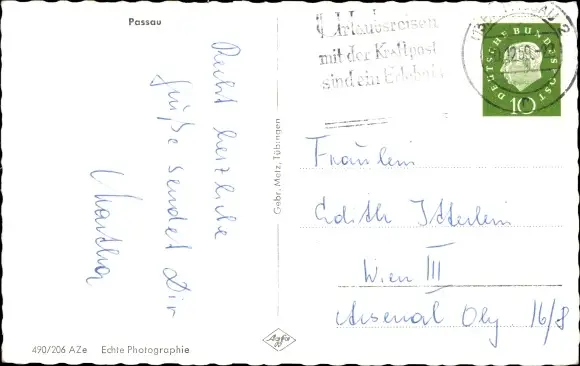 Passau
Recht herzliche
Grüße sendet Dir
Martha
Urlaubsreisen
mit der Kraftpost
sind ein Erlebnis
DEUTSCHE BUNDESPOST
10
Fräulein
Edith Itterlein
Wien III
Arsenal Obj 16/8
Gebr. Metz, Tübingen
490/206 AZe Echte Photographie
Agfa